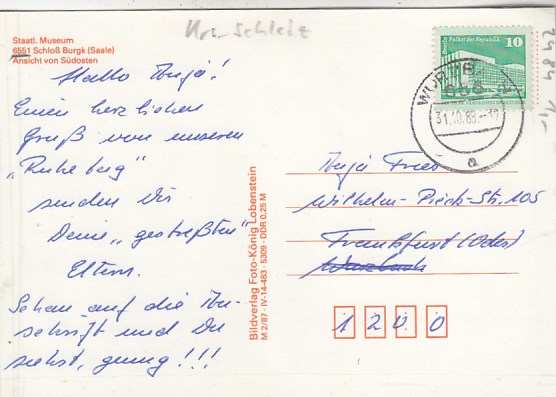 Krs. Schleiz
Staatl. Museum
6551 Schloß Burgk (Saale)
Ansicht von Südosten
Hallo Anja!
Einen herzlichen
Gruß von unserem
"Ruhetag"
senden Dir
Deine "gestreßten"
Eltern.
Schau auf die An-
schrift und Du
siehst, genug!!!
Bildverlag Foto-König Lobenstein
M 2/87 · IV-14-483 · 5309 · DDR 0,25 M
Palast der Republik
10
31.10.89
a
Anja
Wilhelm-Pieck-Str. 105
Frankfurt (Oder)
1200
2484 1,-